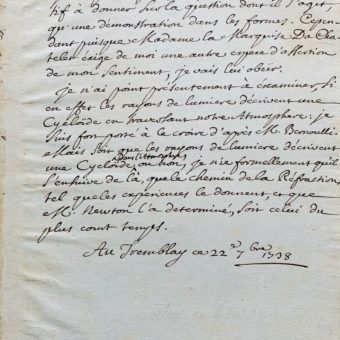 tif à donner sur la question dont il s'agit,
qu'une démonstration dans les formes. Cepen-
dant puisque Madame la Marquise Du Cha-
telet exige de moi une autre espèce d'assertion
de mon sentiment, je vais lui obéir.
Je n'ai point présentement à examiner, si
en effet les rayons de lumiere décrivent une
Cycloïde en traversant notre Atmosphere. je
suis fort porté à le croire d'après M. Bernoulli.
Mais soit que les rayons de lumiere décrivent
une Cycloïde, ou non, je nie formellement qu'il
s'enſuive de là, que le chemin de la Réfraction
tel que les experiences le donnent, et que
M. Newton l'a determiné, soit celui du
plus court temps.
Au Tremblay ce 22e 7bre 1738